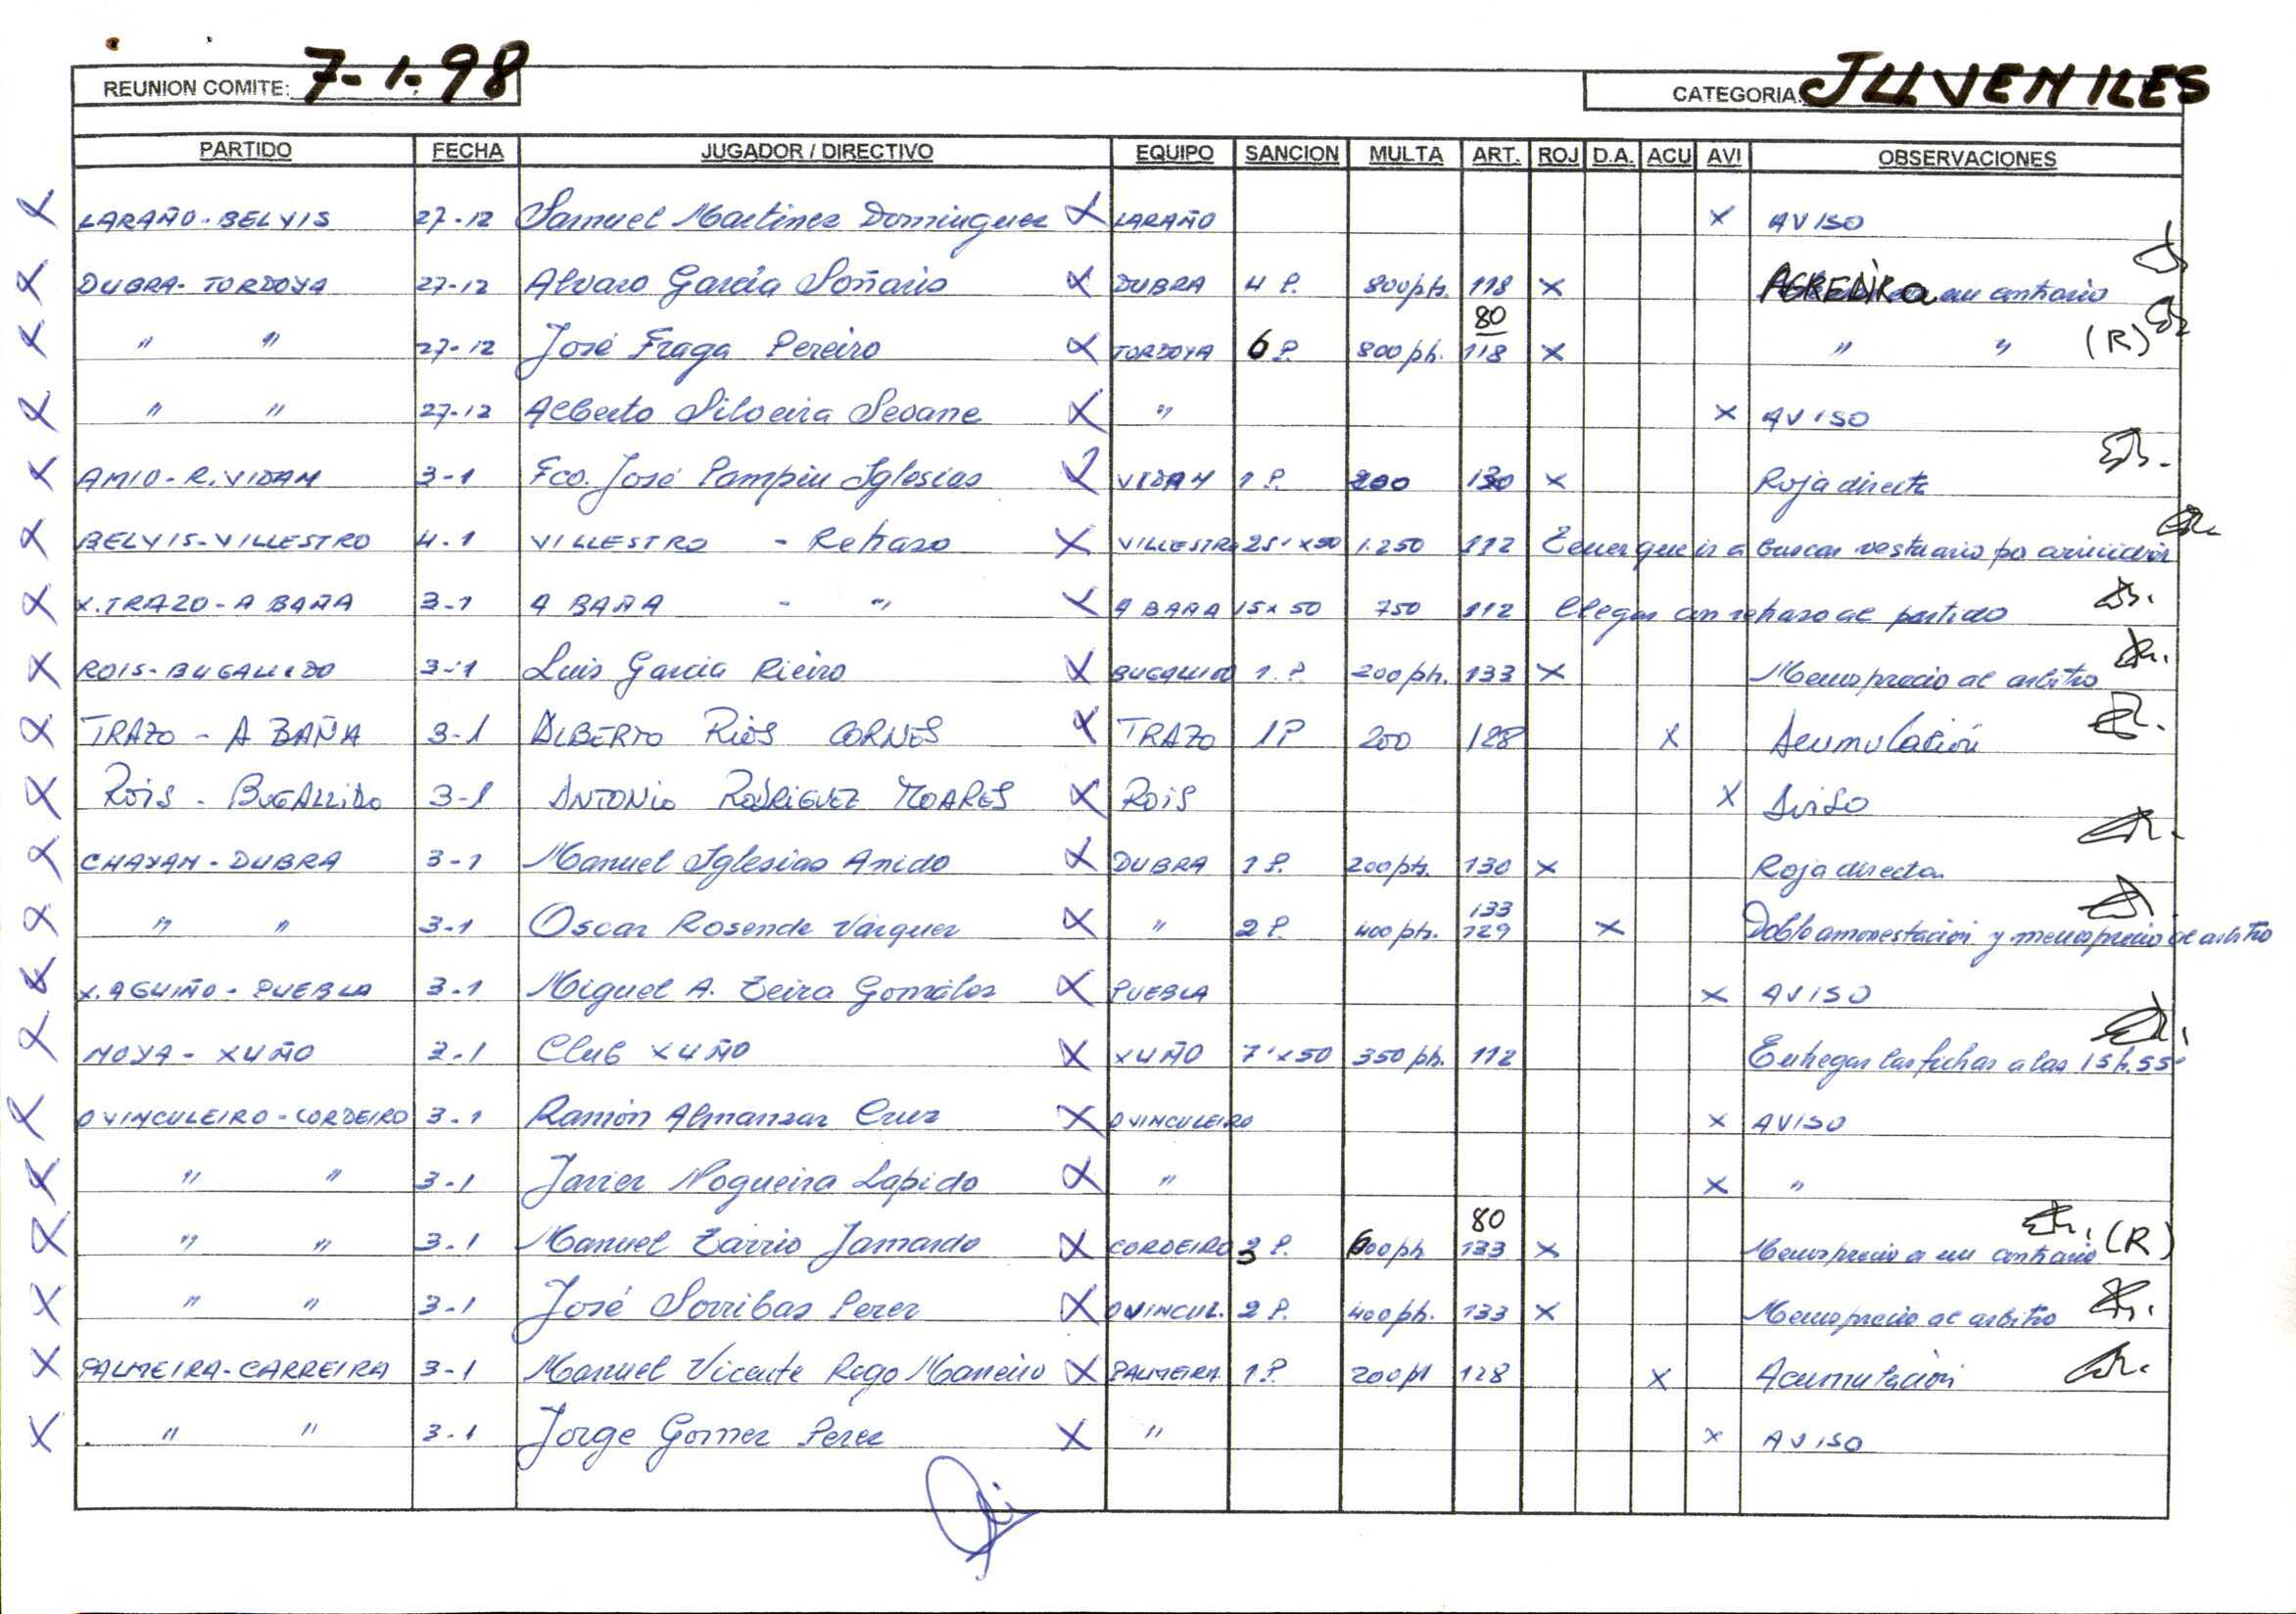 REUNION COMITE: 7-1-98 CATEGORIA: JUVENILES
PARTIDO FECHA JUGADOR / DIRECTIVO EQUIPO SANCION MULTA ART. ROJ D.A. ACU AVI OBSERVACIONES
X LARAÑO-BELVIS 27-12 Samuel Martinez Dominguez X LARAÑO X AVISO
X DUBRA-TORDOYA 27-12 Alvaro Garcia Soñario X DUBRA 4 P. 800 pts. 118 X AGREDIR a un contrario
X " " 27-12 José Fraga Pereiro X TORDOYA 6 P. 800 pts. 80 118 X " " (R)
X " " 27-12 Alberto Silveira Seoane X " X AVISO
X AMIO-R.VIDAN 3-1 Fco. José Pampin Iglesias X VIDAN 1 P. 200 130 X Roja directa
X BELVIS-VILLESTRO 4-1 VILLESTRO - Retraso X VILLESTRO 25'x50 1.250 112 Tener que ir a buscar vestuario po
X X.TRAZO-A BAÑA 3-1 A BAÑA - " X A BAÑA 15x50 750 112 llegar con retraso al partido
X ROIS-BUGALLIDO 3-1 Luis Garcia Rieiro X BUGALLIDO 1 P. 200 pts. 133 X Menosprecio al arbitro
X TRAZO - A BAÑA 3-1 ALBERTO RIOS CORNES X TRAZO 1P 200 128 X Acumulación
X ROIS - BUGALLIDO 3-1 ANTONIO RODRIGUEZ MOARES X ROIS X AVISO
X CHAYAN-DUBRA 3-1 Manuel Iglesias Anido X DUBRA 1 P. 200 pts. 130 X Roja directa
X " " 3-1 Oscar Rosende Vazquez X " 2 P. 400 pts. 133 129 X Doble amonestación y menosprecio al arbitro
X X.AGUIÑO-PUEBLA 3-1 Miguel A. Teira González X PUEBLA X AVISO
X NOYA-XUÑO 3-1 Club XUÑO X XUÑO 7'x50 350 pts. 112 Entregar las fichas a las 15h.55'
X O VINCULEIRO-CORDEIRO 3-1 Ramón Almanzar Cruz X O VINCULEIRO X AVISO
X " " 3-1 Javier Nogueira Lapido X " X "
X " " 3-1 Manuel Tarrio Jamardo X CORDEIRO 3 P. 600 pts 80 133 X Menosprecio a un contrario (R)
X " " 3-1 José Sorribas Perez X O VINCUL. 2 P. 400 pts. 133 X Menosprecio al arbitro
X PALMEIRA-CARREIRA 3-1 Manuel Vicente Rego Maneiro X PALMEIRA 1 P. 200 pt 128 X Acumulación
X " " 3-1 Jorge Gomez Perez X " X AVISO